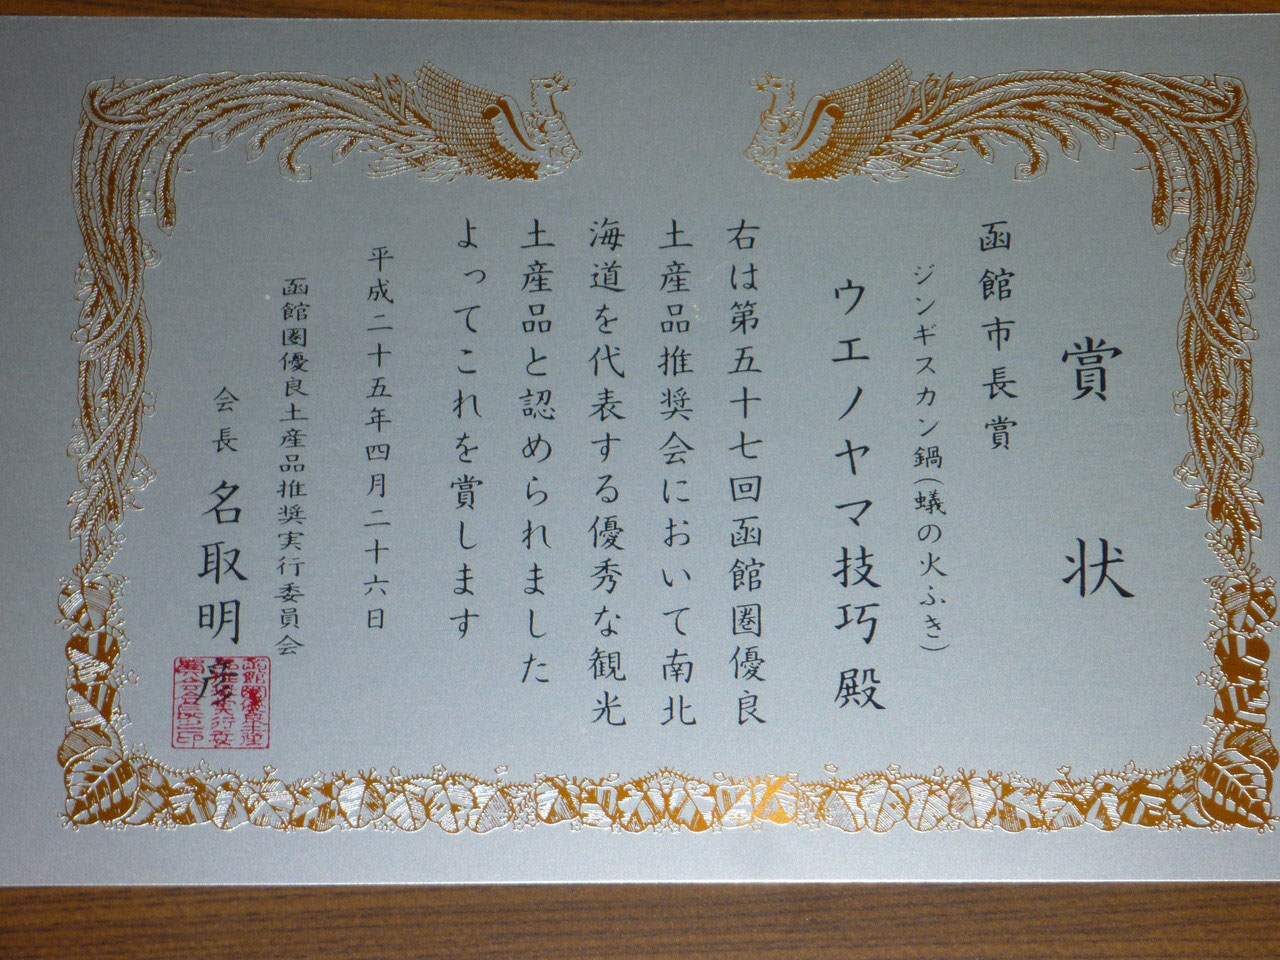 賞状
函館市長賞
ジンギスカン鍋(蟻の火ふき)
ウエノヤマ技巧殿
右は第五十七回函館圏優良
土産品推奨会において南北
海道を代表する優秀な観光
土産品と認められました
よってこれを賞します
平成二十五年四月二十六日
函館圏優良土産品推奨実行委員会
会長 名取明彦